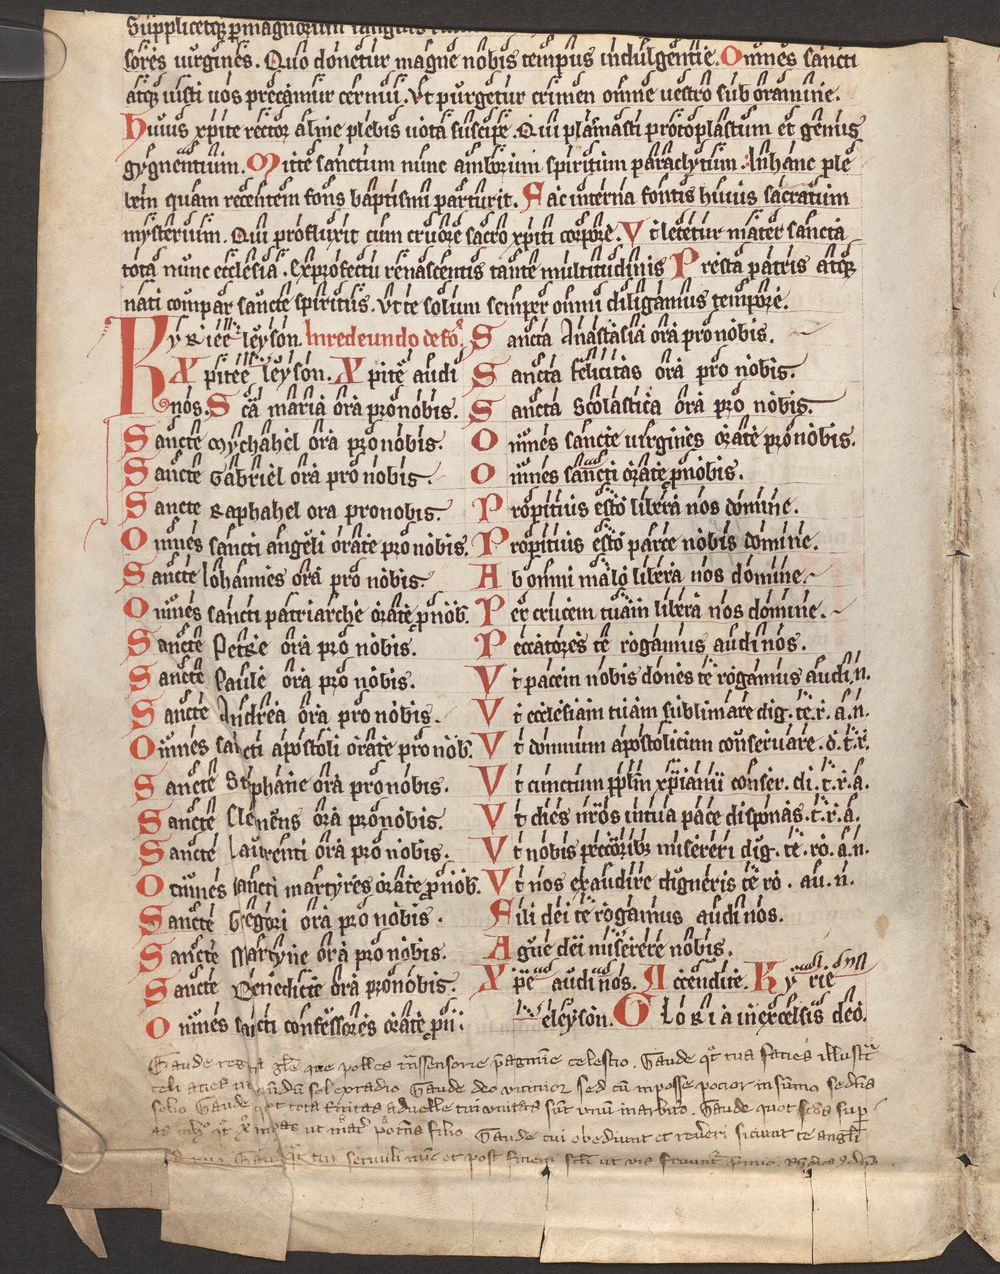 Suppliceteqz p magnorum
sores uirgines. Quo donetur magne nobis tempus indulgentie. Omnes sancti
atqz iusti uos precamur cernui. Vt purgetur crimen omne uestro sub oramine.
Huius xpiste rector alme plebis uota suscipe. Qui plasmasti protoplastum et genus
gygnentium. Mitte sanctum nunc amborum spiritum paraclytum. In hanc ple
bem quam recentem fons baptismi parturit. Fac interna fontis huius sacratum
mysterium. Qui profluxit cum cruore sacro xpisti corpore. Vt letetur mater sancta
tota nunc ecclesia. Ex profectu renascentis tante multitudinis Presta patris atqz
nati compar sancte spiritus. Vt te solum semper omni diligamus tempore.
Kyrieeleyson. In redeundo de fo.
Xpisteeleyson. Xpiste audi
nos. Sca maria ora pro nobis.
Sancte Mychahel ora pro nobis.
Sancte Gabriel ora pro nobis.
Sancte Raphahel ora pro nobis.
Omnes sancti angeli orate pro nobis.
Sancte Iohannes ora pro nobis.
Omnes sancti patriarche orate p nob.
Sancte Petre ora pro nobis.
Sancte Paule ora pro nobis.
Sancte Andrea ora pro nobis.
Omnes sancti apostoli orate pro nob.
Sancte Stephane ora pro nobis.
Sancte Clemens ora pro nobis.
Sancte Laurenti ora pro nobis.
Omnes sancti martyres orate p nob.
Sancte Gregori ora pro nobis.
Sancte Martyne ora pro nobis.
Sancte Benedicte ora pro nobis.
Omnes sancti confessores orate p n.
Sancta Anastasia ora pro nobis.
Sancta Felicitas ora pro nobis.
Sancta Scolastica ora pro nobis.
Omnes sancte uirgines orate pro nobis.
Omnes sancti orate p nobis.
Propitius esto libera nos domine.
Propitius esto parce nobis domine.
Ab omni malo libera nos domine.
Per crucem tuam libera nos domine.
Peccatores te rogamus audi nos.
Vt pacem nobis dones te rogamus audi.n.
Vt ecclesiam tuam sublimare dig. te. r. a. n.
Vt domnum apostolicum conseruare. d. t. r.
Vt cunctum pplm xpianu conser. di. t. r. a.
Vt dies nros in tua pace disponas. t. r. a.
Vt nobis peccoribz misereri dig. te. ro. a. n.
Vt nos exaudire digneris te ro. au. n.
Fili dei te rogamus audi nos.
Agne dei miserere nobis.
Xpe audi nos. Accendite. Kyrie
eleyson. Gloria in excelsis deo.
Gaude que polles celestio. Gaude tua facies
celi acies sole radio Gaude deo vicinior sed posse pocior in sumo
solio Gaude tota adnelle tui Gaude quot
ut filio Gaude cui obediunt et te angli
tui seruuli nunc et post